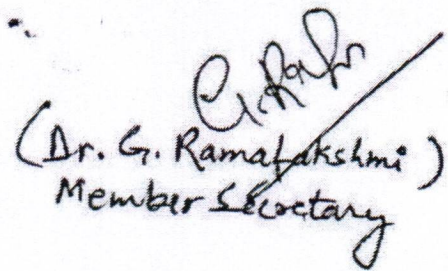 (Dr. G. Ramalakshmi)
Member Secretary